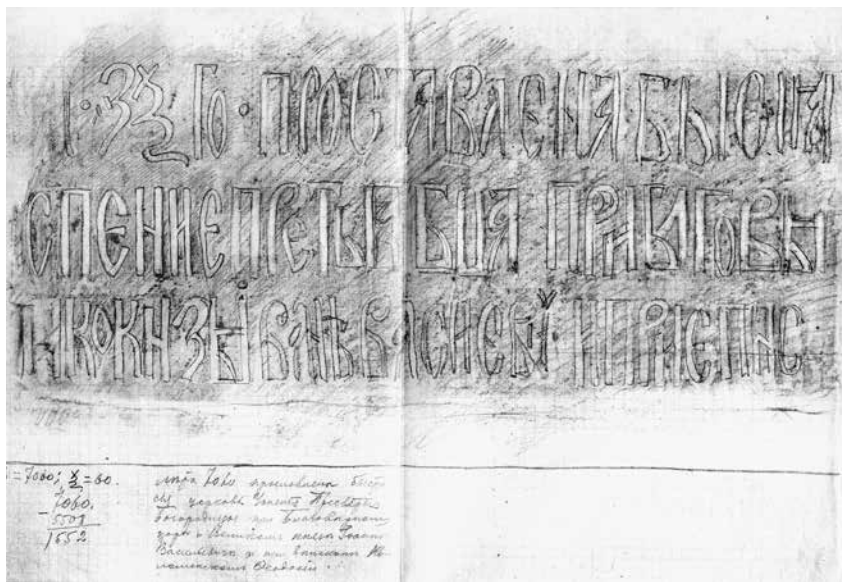 ЗѮ ГО · ПРОСТАВЛЕНА БЫ СИѦ
СПЕНИЕ ПРЕТЫѦ БЦА ПРИ БЛГОВѢ
КО КНЗЫ ВАНѢ ВАСИЕВИ И ПРИ ЕПИС
=7060; ѯ=60.
7060.
- 5508
1552
лѣта 7060 прославлена бысть
сія церковь Успенія Пресвятыя
богородицы при благовѣрномъ
царѣ и Великомъ князѣ Іоаннѣ
Васильевичѣ и при епископѣ Ко
ломенскомъ Ѳеодосіи.